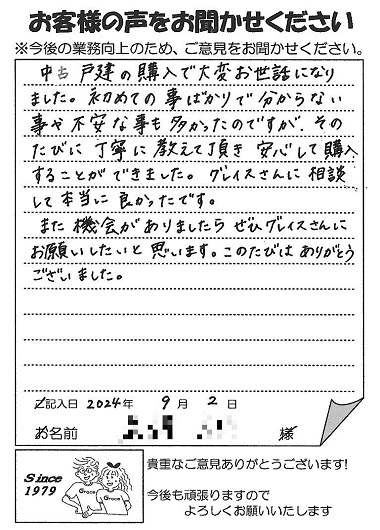 お客様の声をお聞かせください
※今後の業務向上のため、ご意見をお聞かせください。
中古 戸建の購入で大変お世話になり
ました。初めての事ばかりで分からない
事や不安な事も多かったのですが、その
たびに丁寧に教えて頂き安心して購入
することができました。グレイスさんに相談
して本当に良かったです。
また機会がありましたらぜひグレイスさんに
お願いしたいと思います。このたびはありがとう
ございました。
ご記入日 2024年 9月 2日
お名前 様
Since
1979
Grace
Grace
貴重なご意見ありがとうございます!
今後も頑張りますので
よろしくお願いいたします